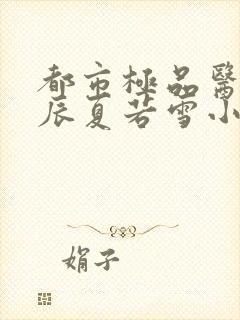 都市極品醫
辰夏若雪小
娟子